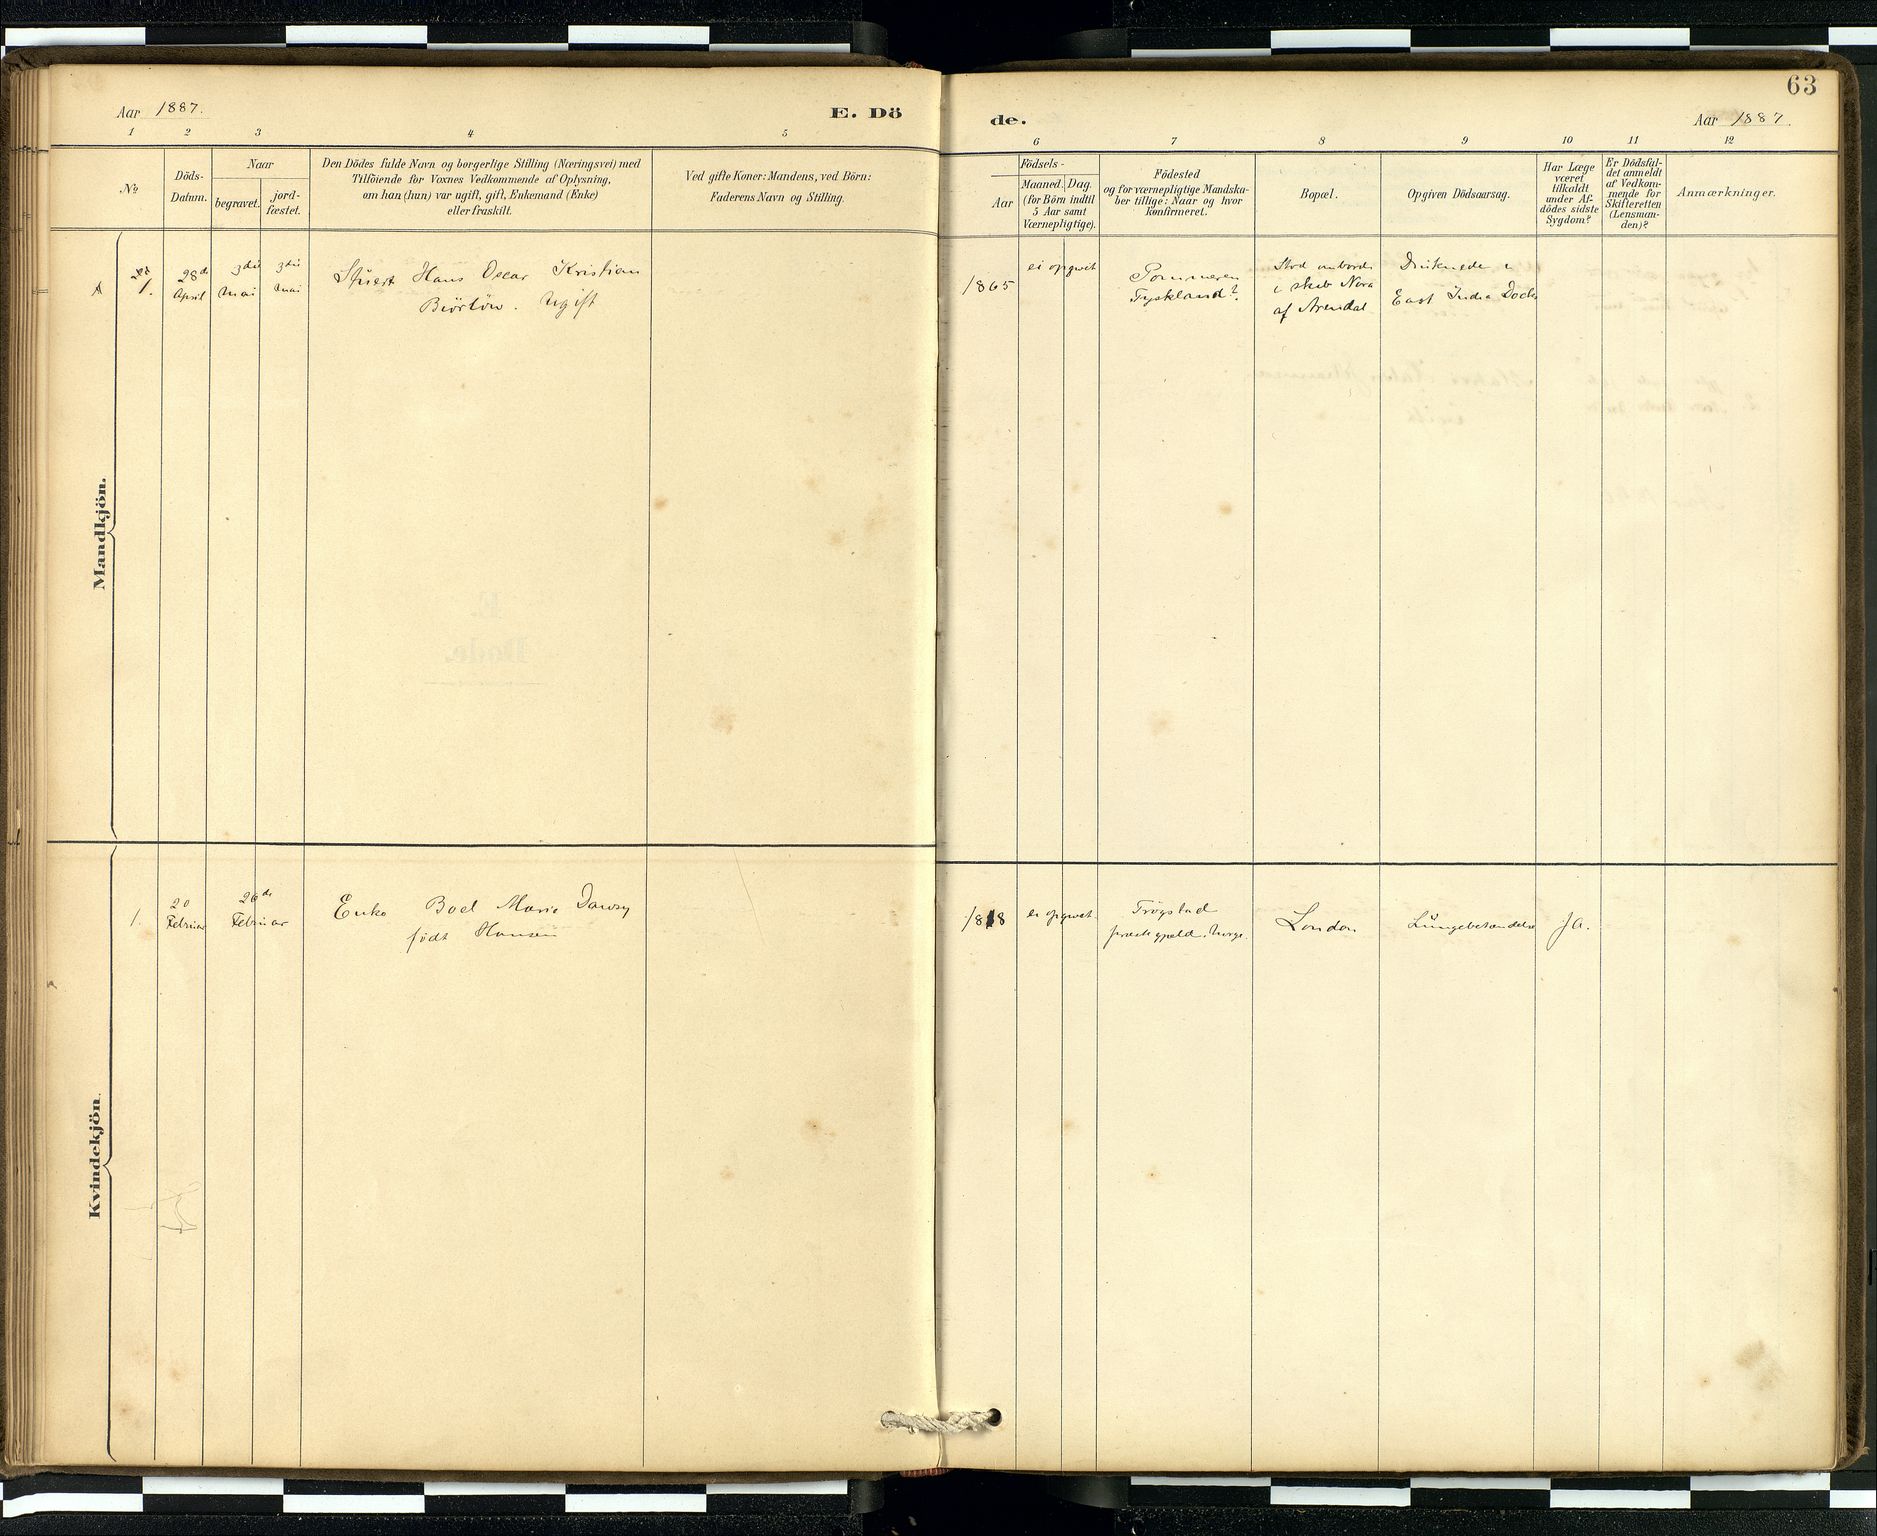 Aar 1887.
E. Dö
1 2 3 4 5
No
Döds-
Datum.
Naar
begravet.
jord-
fæstet.
Den Dödes fulde Navn og borgerlige Stilling (Næringsvei) med
Tilföiende for Voxnes Vedkommende af Oplysning,
om han (hun) var ugift, gift, Enkemand (Enke)
eller fraskilt.
Ved gifte Koner: Mandens, ved Börn:
Faderens Navn og Stilling.
Mandkjön.
1.
28de
April
3die
Mai
3die
Mai
Hans Oscar Kristian
Ugift
Kvindekjön.
1.
20
Februar
26de
Februar
Enke Boel Marie
födt Hansen
63
de.
Aar 1887.
6 7 8 9 10 11 12
Aar
Födsels-
Maaned. Dag.
(for Börn indtil
5 Aar samt
Værnepligtige).
Födested
og for værnepligtige Mandska-
ber tillige: Naar og hvor
konfirmeret.
Bopæl.
Opgiven Dödsaarsag.
Har Læge
været
tilkaldt
under Af-
dödes sidste
Sygdom?
Er Dödsfal-
det anmeldt
af Vedkom-
mende for
Skifteretten
(Lensman-
den)?
Anmærkninger.
1865
ei opgivet
Pommeren
Tyskland?
Stod ombord
i skib Nora
af Arendal
Druknede i
East India Dock
1818
ei opgivet
Trögstad
London
Lungebetændelse
Ja.